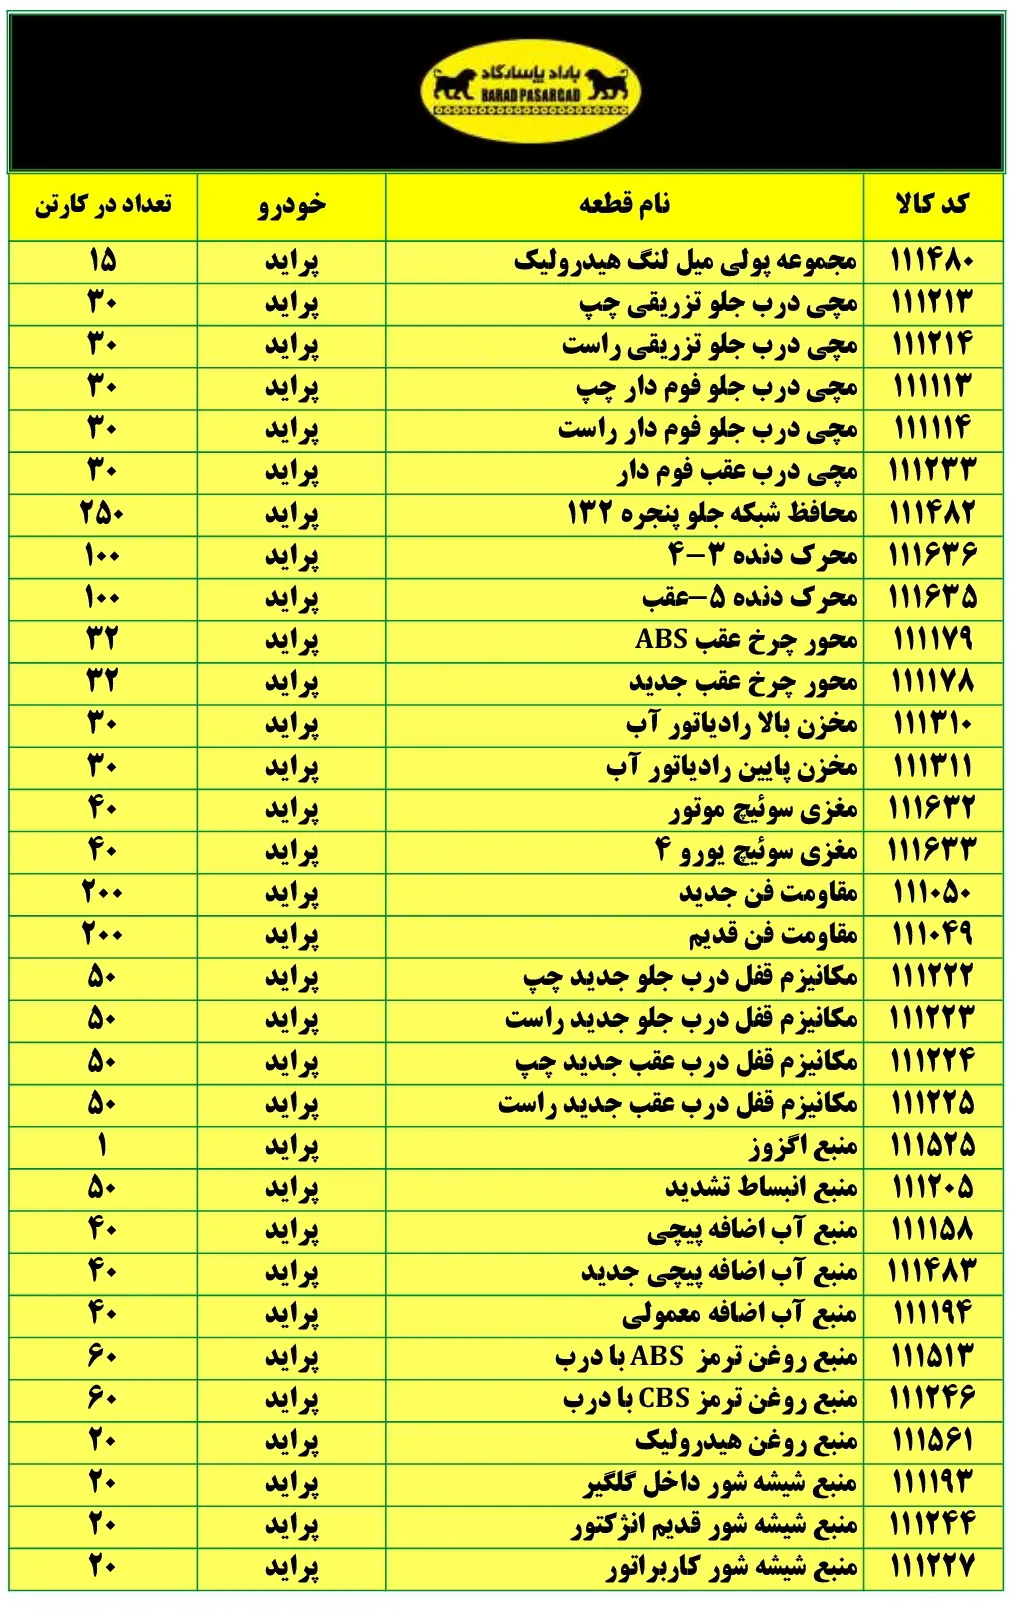 باراد پاسارگاد
BARAD PASARGAD
کد کالا نام قطعه خودرو تعداد در کارتن
۱۱۱۴۸۰ مجموعه پولی میل لنگ هیدرولیک پراید ۱۵
۱۱۱۲۱۳ مچی درب جلو تزریقی چپ پراید ۳۰
۱۱۱۲۱۴ مچی درب جلو تزریقی راست پراید ۳۰
۱۱۱۱۱۳ مچی درب جلو فوم دار چپ پراید ۳۰
۱۱۱۱۱۴ مچی درب جلو فوم دار راست پراید ۳۰
۱۱۱۲۳۳ مچی درب عقب فوم دار پراید ۳۰
۱۱۱۴۸۲ محافظ شبکه جلو پنجره ۱۳۲ پراید ۲۵۰
۱۱۱۶۳۶ محرک دنده ۳-۴ پراید ۱۰۰
۱۱۱۶۳۵ محرک دنده ۵-عقب پراید ۱۰۰
۱۱۱۱۷۹ محور چرخ عقب ABS پراید ۳۲
۱۱۱۱۷۸ محور چرخ عقب جدید پراید ۳۲
۱۱۱۳۱۰ مخزن بالا رادیاتور آب پراید ۳۰
۱۱۱۳۱۱ مخزن پایین رادیاتور آب پراید ۳۰
۱۱۱۶۳۲ مغزی سوئیچ موتور پراید ۴۰
۱۱۱۶۳۳ مغزی سوئیچ یورو ۴ پراید ۴۰
۱۱۱۰۵۰ مقاومت فن جدید پراید ۲۰۰
۱۱۱۰۴۹ مقاومت فن قدیم پراید ۲۰۰
۱۱۱۲۲۲ مکانیزم قفل درب جلو جدید چپ پراید ۵۰
۱۱۱۲۲۳ مکانیزم قفل درب جلو جدید راست پراید ۵۰
۱۱۱۲۲۴ مکانیزم قفل درب عقب جدید چپ پراید ۵۰
۱۱۱۲۲۵ مکانیزم قفل درب عقب جدید راست پراید ۵۰
۱۱۱۵۲۵ منبع اگزوز پراید ۱
۱۱۱۲۰۵ منبع انبساط تشدید پراید ۵۰
۱۱۱۱۵۸ منبع آب اضافه پیچی پراید ۴۰
۱۱۱۴۸۳ منبع آب اضافه پیچی جدید پراید ۴۰
۱۱۱۱۹۴ منبع آب اضافه معمولی پراید ۴۰
۱۱۱۵۱۳ منبع روغن ترمز ABS با درب پراید ۶۰
۱۱۱۲۴۶ منبع روغن ترمز CBS با درب پراید ۶۰
۱۱۱۵۶۱ منبع روغن هیدرولیک پراید ۲۰
۱۱۱۱۹۳ منبع شیشه شور داخل گلگیر پراید ۲۰
۱۱۱۲۴۴ منبع شیشه شور قدیم انژکتور پراید ۲۰
۱۱۱۲۲۷ منبع شیشه شور کاربراتور پراید ۲۰